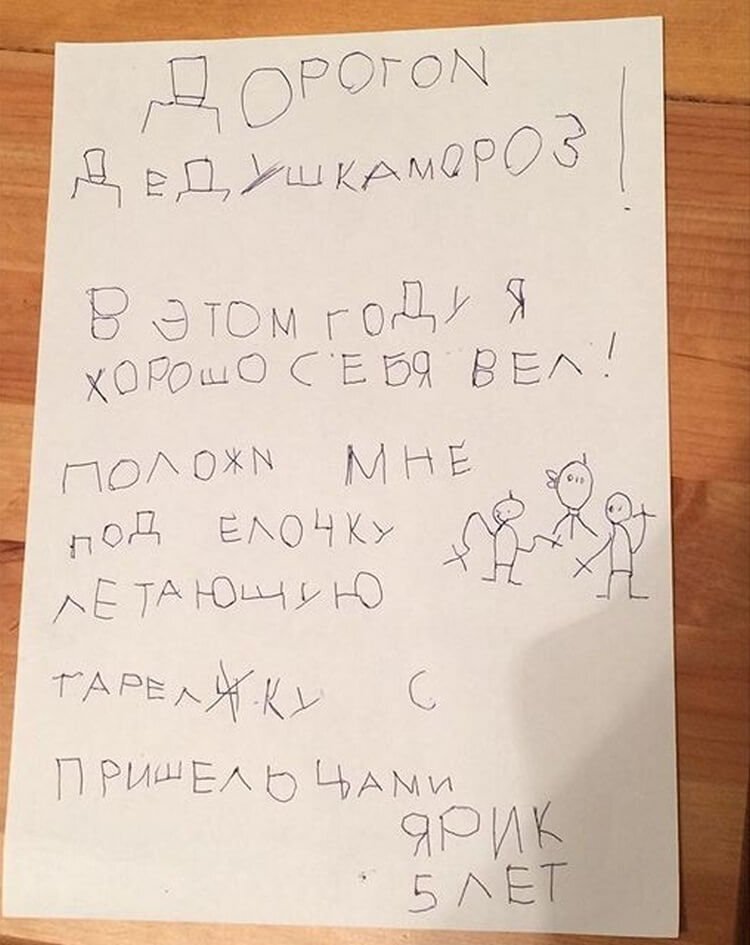 ДОРОГОЙ
ДЕДУШКАМОРОЗ!
В ЭТОМ ГОДУ Я
ХОРОШО СЕБЯ ВЕЛ!
ПОЛОЖИ МНЕ
ПОД ЕЛОЧКУ
ЛЕТАЮЩУЮ
ТАРЕЛКУ С
ПРИШЕЛЬЦАМИ
ЯРИК
5 ЛЕТ